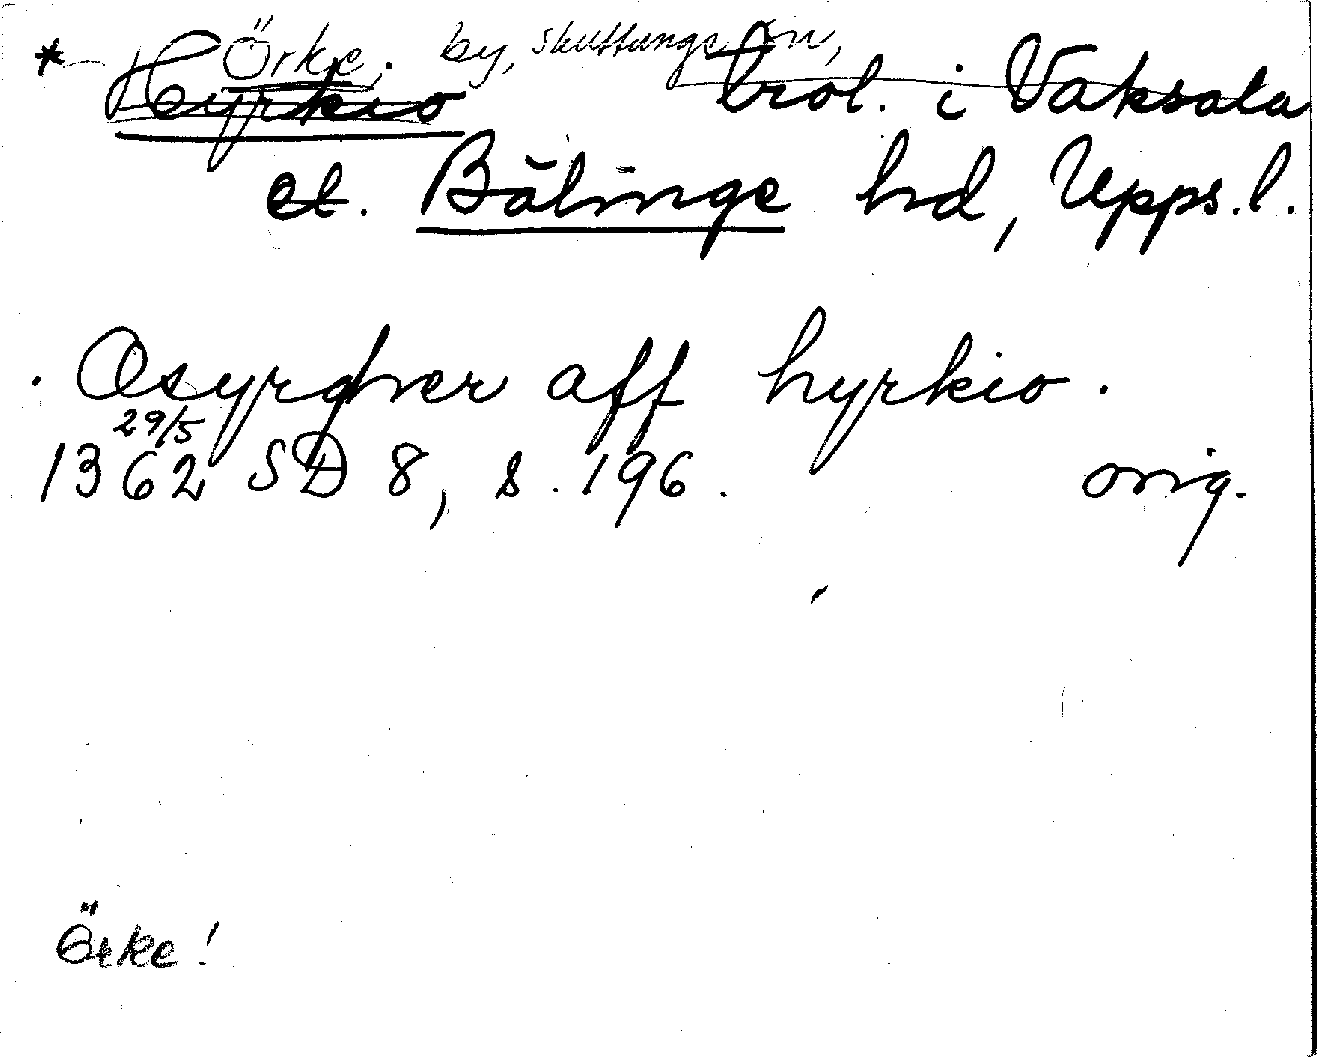 Örke, by, Skuttunge sn,
* Hyrkio trol. i Vaksala
el. Bälinge hd, Upps. l.
Osyrgher aff hyrkio.
29/5
1362 SD 8, s. 196. orig.
Örke!